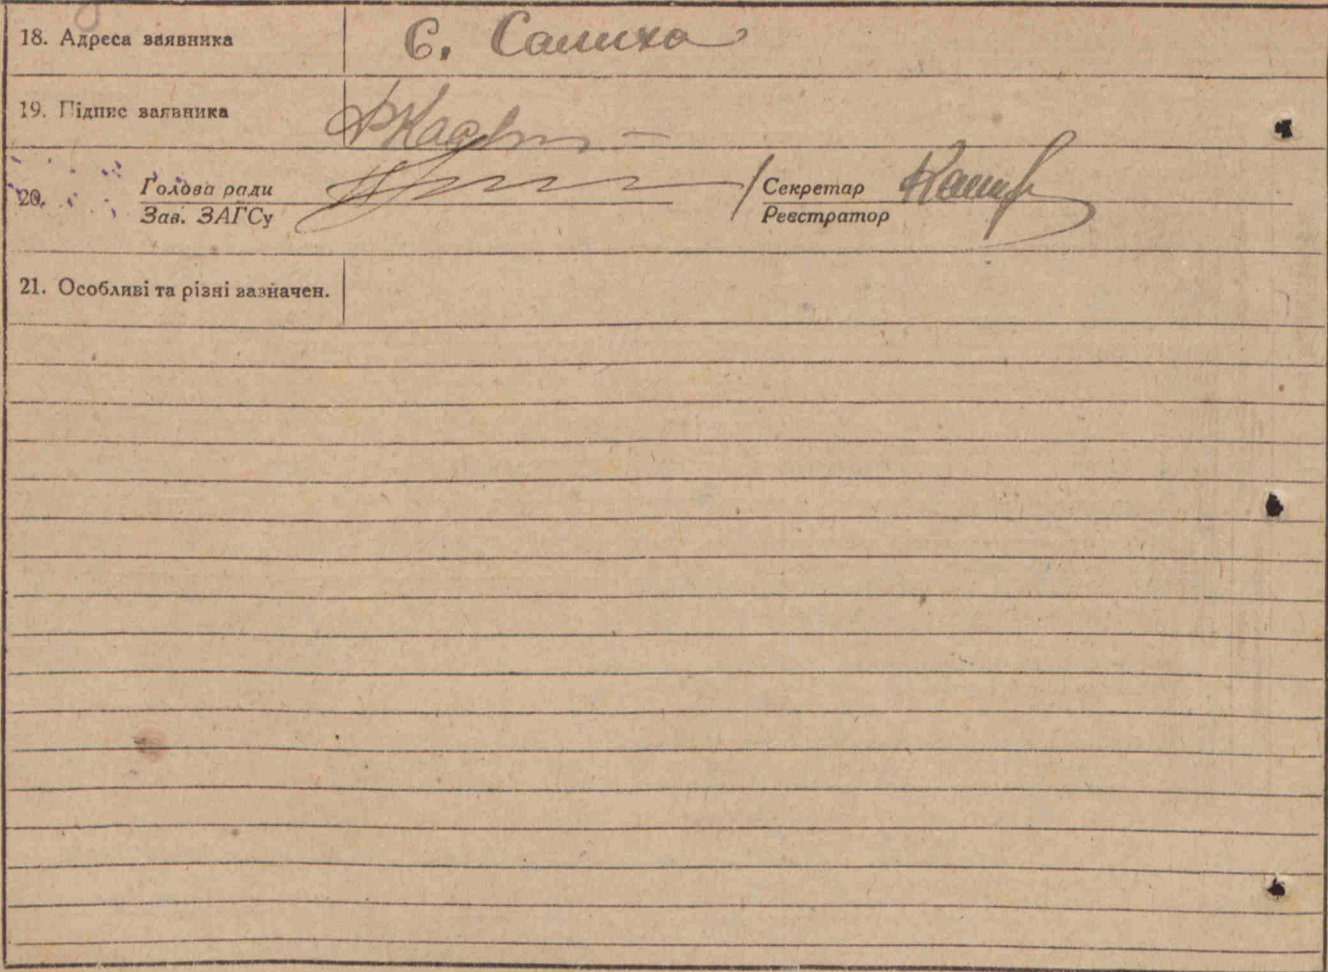 18. Адреса заявника С. Салиха
19. Підпис заявника
20. Голова ради Секретар
Зав. ЗАГСу Реєстратор
21. Особливі та різні зазначен.